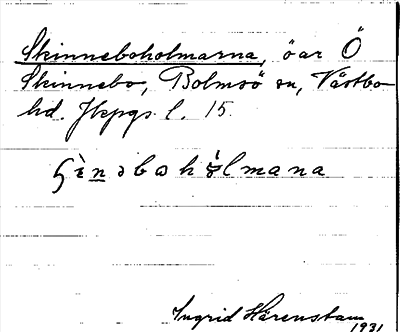 Skinneboholmarna, öar Ö
Skinnebo, Bolmsö sn, Västbo
hd. Jkpgs l. 15.
ɕɩ̀nəbɷhɷ̀lmana
Ingrid Härenstam
1931